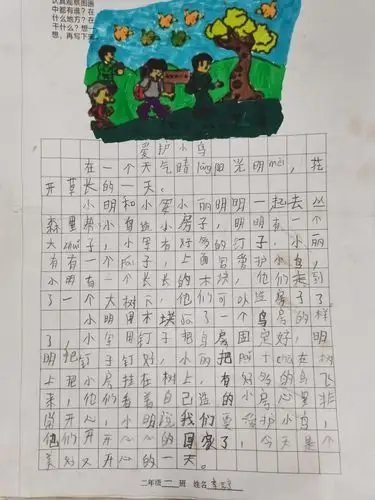 认真观察图画
中都有谁?在
什么地方?在
干什么?想一
想,再写下来。
爱护小鸟
在一个天气晴lǎng阳光明mèi,花
开草长的一天。
小明和小军小丽明明一起去丛
森里帮小鸟造小房子,明明有一个
大chuí子,小军有好多的钉子,小丽
有有一个pái子,上面写爱护小鸟,
小明有一个长长的木块,他们走到
了一个大树下,他们可以造房子了
小明用木块 了一个鸟房的样
了,小军用钉子把鸟房固定好,明
明把钉子钉好,小丽把pái 在树
上把小房挂在树上,有好多的鸟飞
来,他们看着自己造的小房心里非
常开心,小明说我们要爱护小鸟,
他们开开心心的回家了,今天是个
美好又开心的一天。
二年级 二 班 姓名 李